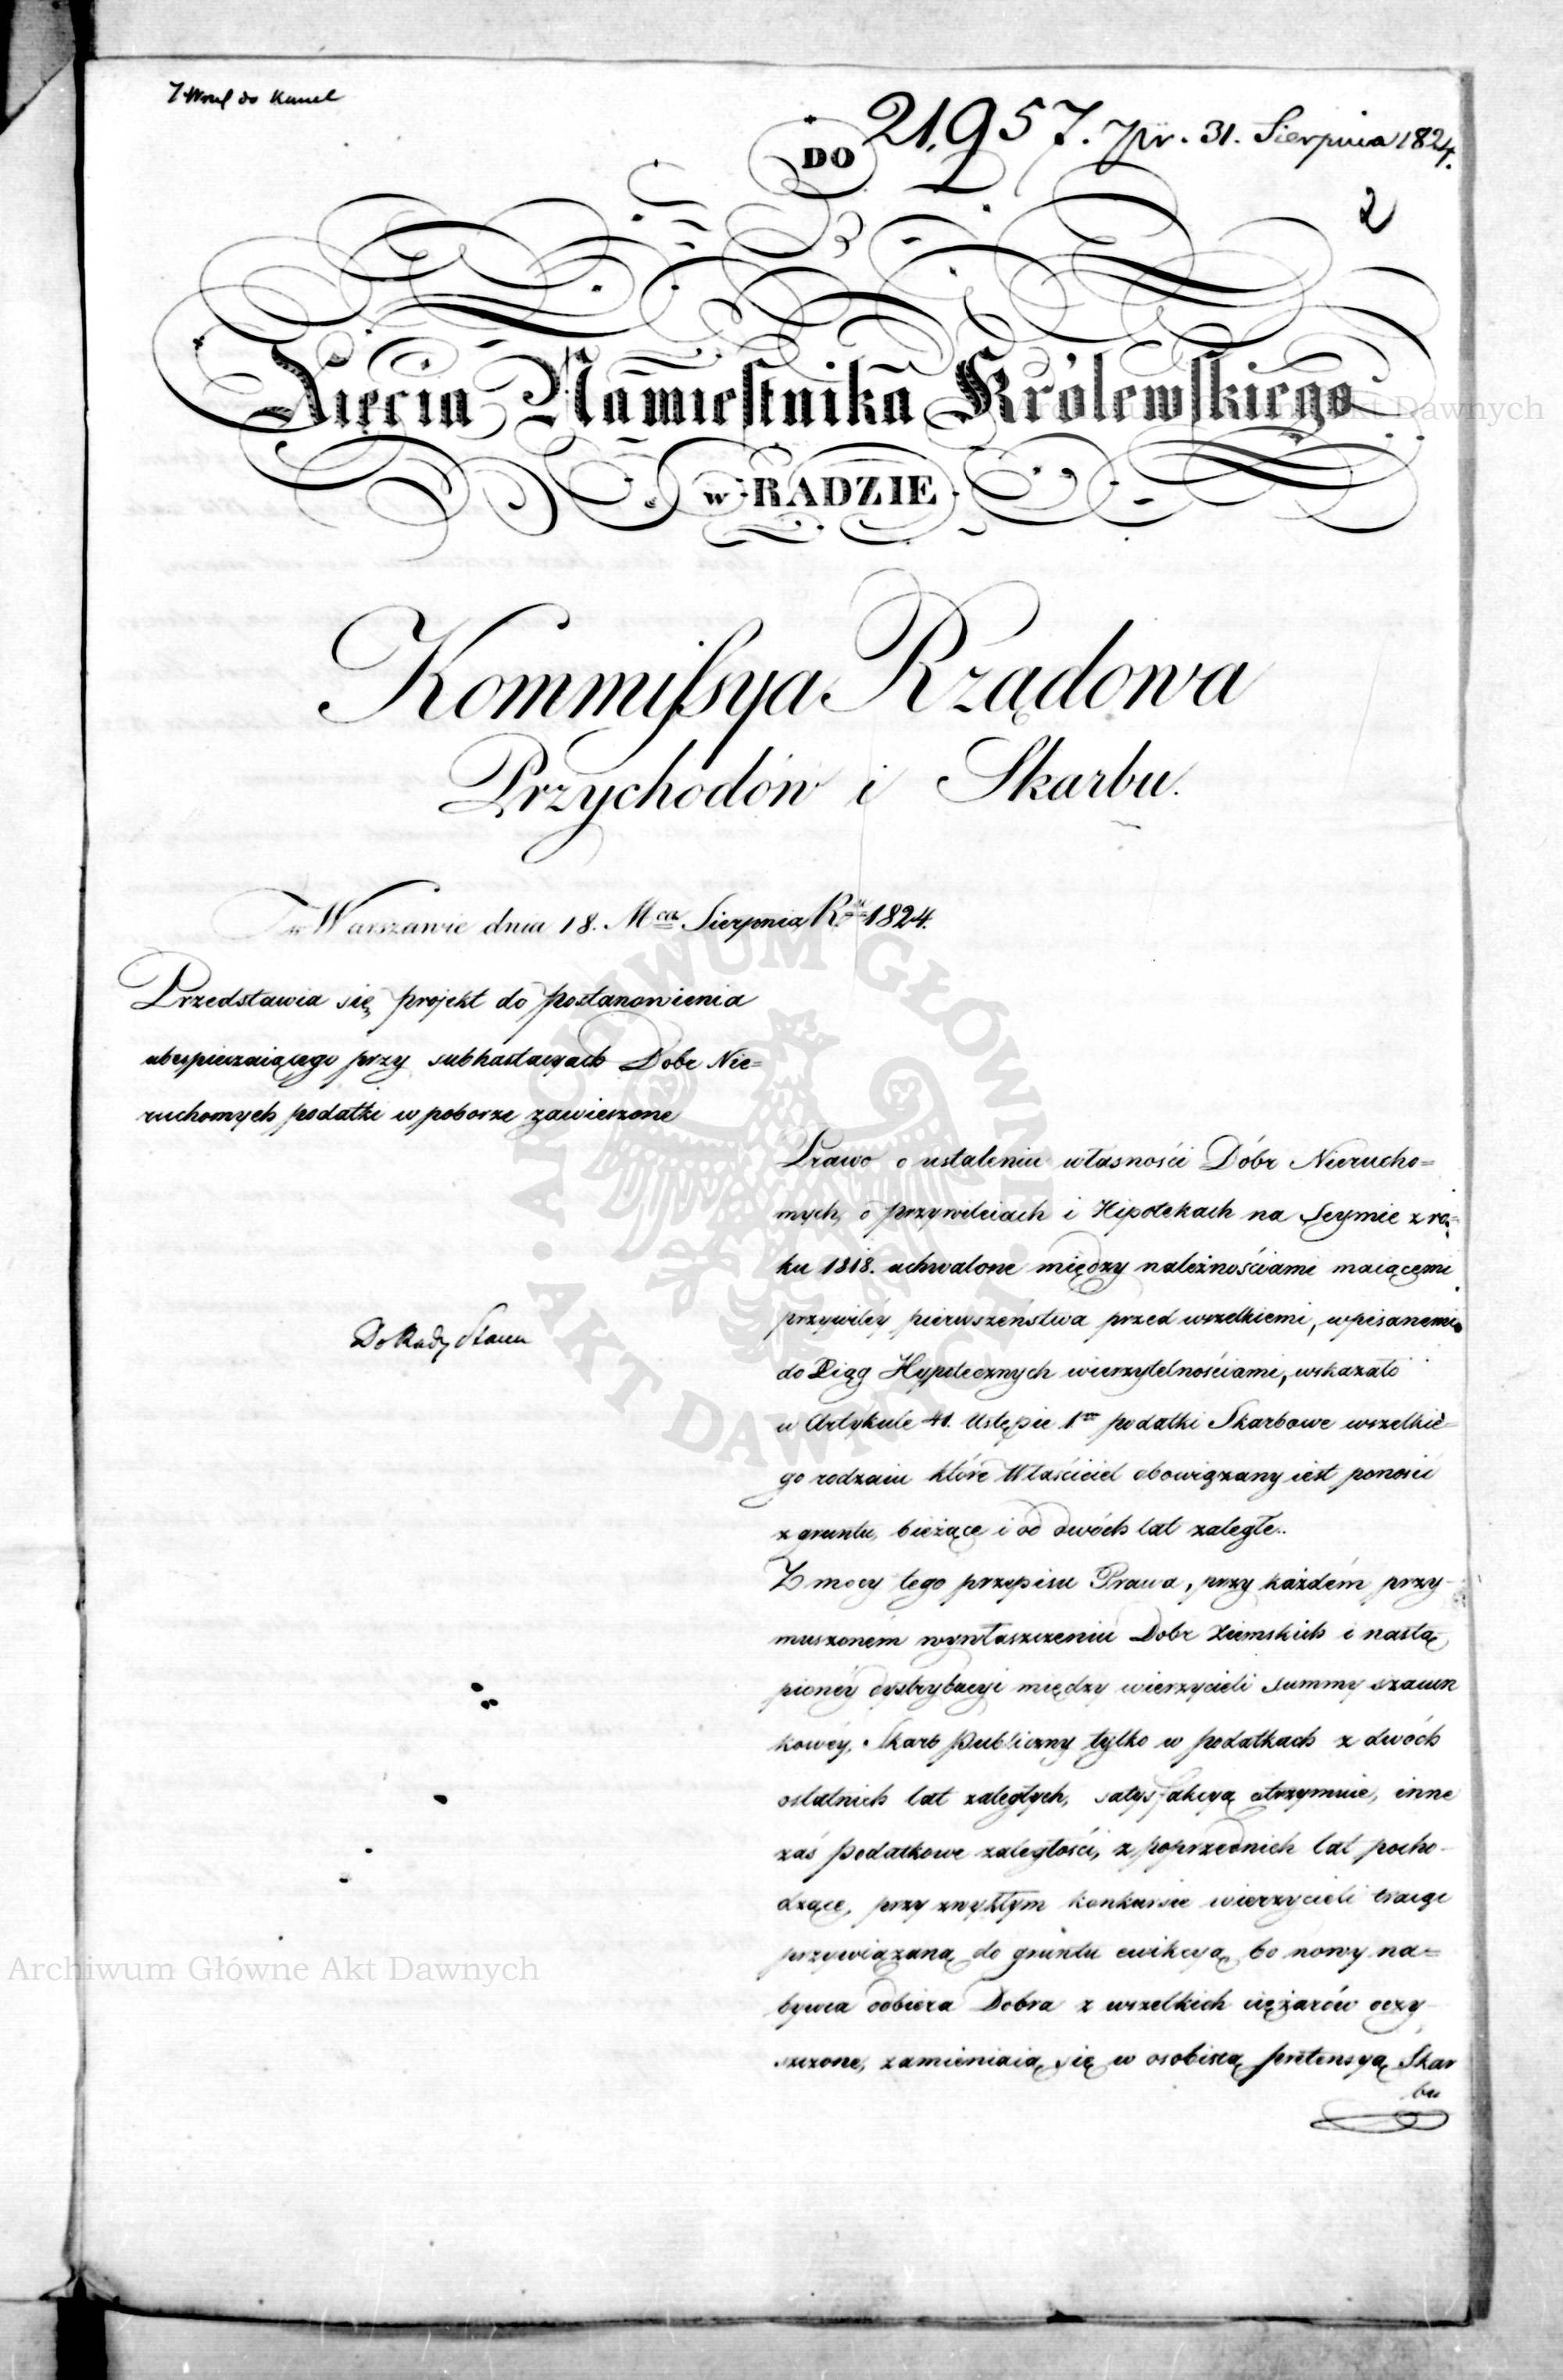 do
21,957. pr. 31. Sierpnia 1824.
2
DO
Xięcia Namiestnika Królewskiego
w RADZIE
Kommissya Rządowa
Przychodów i Skarbu.
w Warszawie dnia 18. Mca Sierpnia Rku 1824.
Przedstawia się projekt do postanowienia
ubespieczaiącego przy subhastacyach Dobr Nie=
ruchomych podatki w poborze zawieszone
Do Rady Stanu
Prawo o ustaleniu własności Dóbr Nierucho=
mych, o przywileiach i Hipotekach na Seymie z ro=
ku 1818. uchwalone między należnościami maiącemi
przywiléy pierwszeństwa przed wszelkiemi, wpisanemi
do Xiąg Hypotecznych wierzytelnościami, wskazało
w Artykule 41. Ustępie 1m podatki Skarbowe wszelkie=
go rodzaiu które Właściciel obowiązany iest ponosić
z gruntu, bieżące i od dwóch lat zaległe..
Z mocy tego przepisu Prawa, przy każdém przy-
muszoném wywłaszczeniu Dobr Ziemskich i nastą
pionéy dystrybucyi między wierzycieli summy szacun
kowéy, Skarb Publiczny tylko w podatkach z dwóch
ostatnich lat zaległych, satysfakcyą otrzymuie, inne
zaś podatkowe zaległości, z poprzednich lat pocho-
dzące, przy zwykłym konkursie wierzycieli tracąc
przywiązaną do gruntu ewikcyą, bo nowy na=
bywca odbiera Dobra z wszelkich ciężarów oczy-
szczone, zamieniaią się w osobistą pretensyą Skar
bu
Archiwum Główne Akt Dawnych
ARCHIWUM GŁÓWNE AKT DAWNYCH